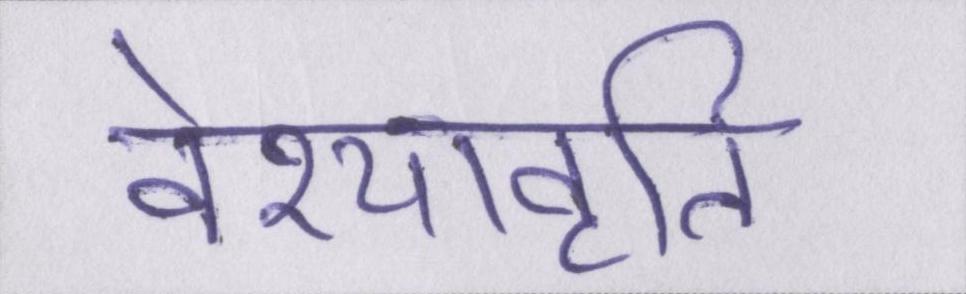 वेश्यावृति